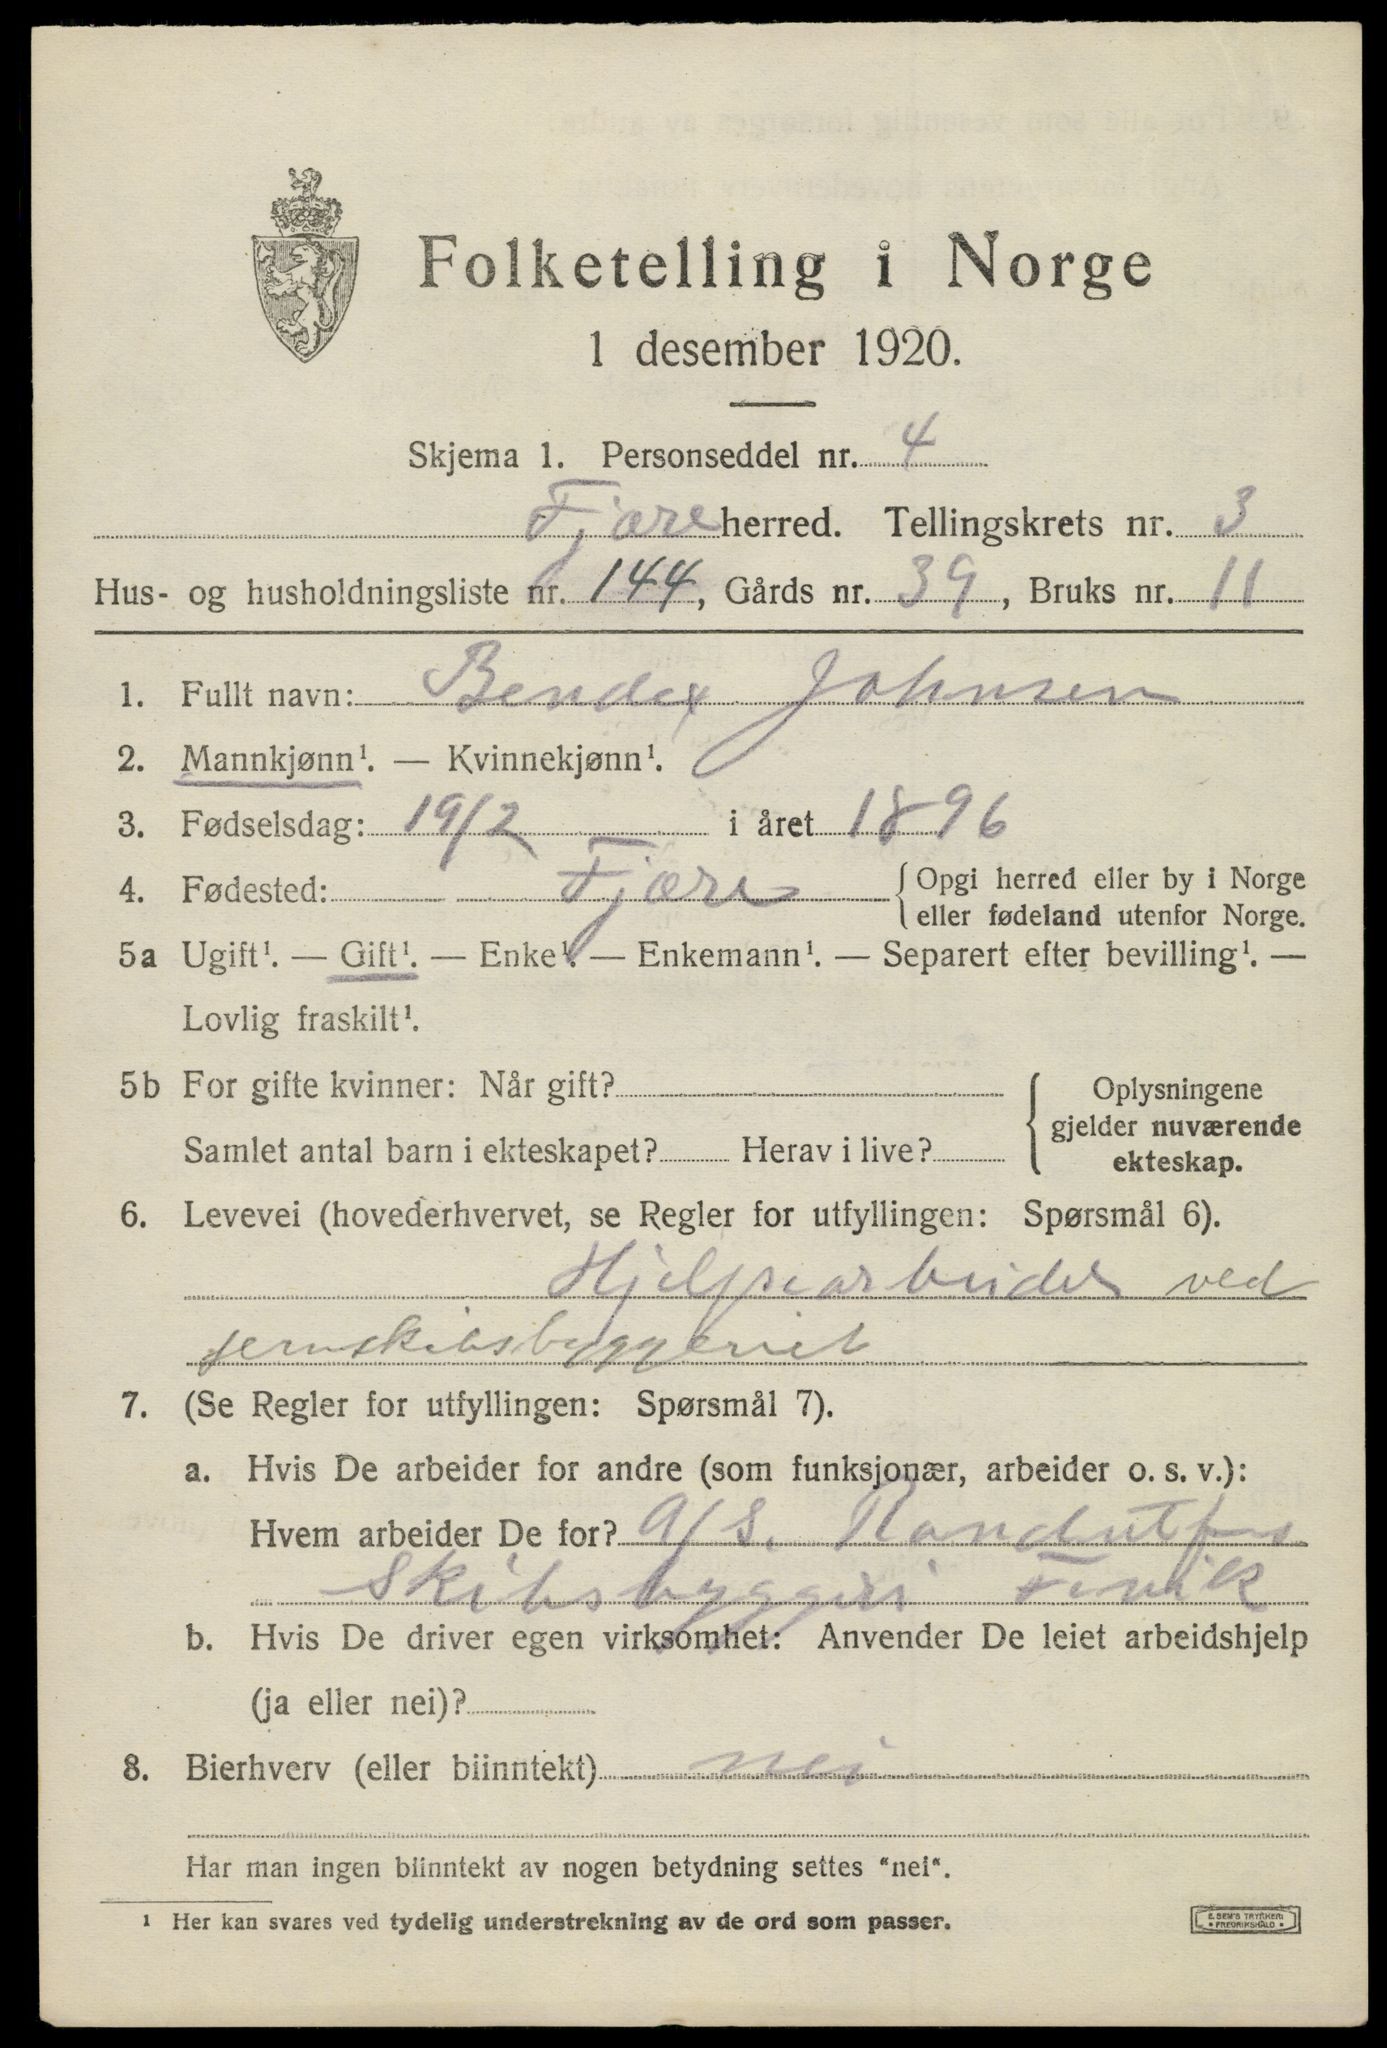 Folketelling i Norge
1 desember 1920.
Skjema 1. Personseddel nr. 4
Fjære herred. Tellingskrets nr. 3
Hus- og husholdningsliste nr. 144, Gårds nr. 39, Bruks nr. 11
1. Fullt navn: Bendix Johnsen
2. Mannkjønn¹. — Kvinnekjønn¹.
3. Fødselsdag: 19/2 i året 1896
4. Fødested: Fjære { Opgi herred eller by i Norge
eller fødeland utenfor Norge.
5a Ugift¹. — Gift¹. — Enke¹. — Enkemann¹. — Separert efter bevilling¹. —
Lovlig fraskilt¹.
5b For gifte kvinner: Når gift? { Oplysningene
gjelder nuværende
ekteskap.
Samlet antal barn i ekteskapet? Herav i live?
6. Levevei (hovederhvervet, se Regler for utfyllingen: Spørsmål 6).
Hjelpearbeider ved
jernskibsbyggeriet
7. (Se Regler for utfyllingen: Spørsmål 7).
a. Hvis De arbeider for andre (som funksjonær, arbeider o. s. v.):
Hvem arbeider De for? A/S.
Skibsbyggeri Fevik
b. Hvis De driver egen virksomhet: Anvender De leiet arbeidshjelp
(ja eller nei)?
8. Bierhverv (eller biinntekt) nei
Har man ingen biinntekt av nogen betydning settes "nei".
¹ Her kan svares ved tydelig understrekning av de ord som passer.
E. SEM'S TRYKKERI
• FREDRIKSHALD •